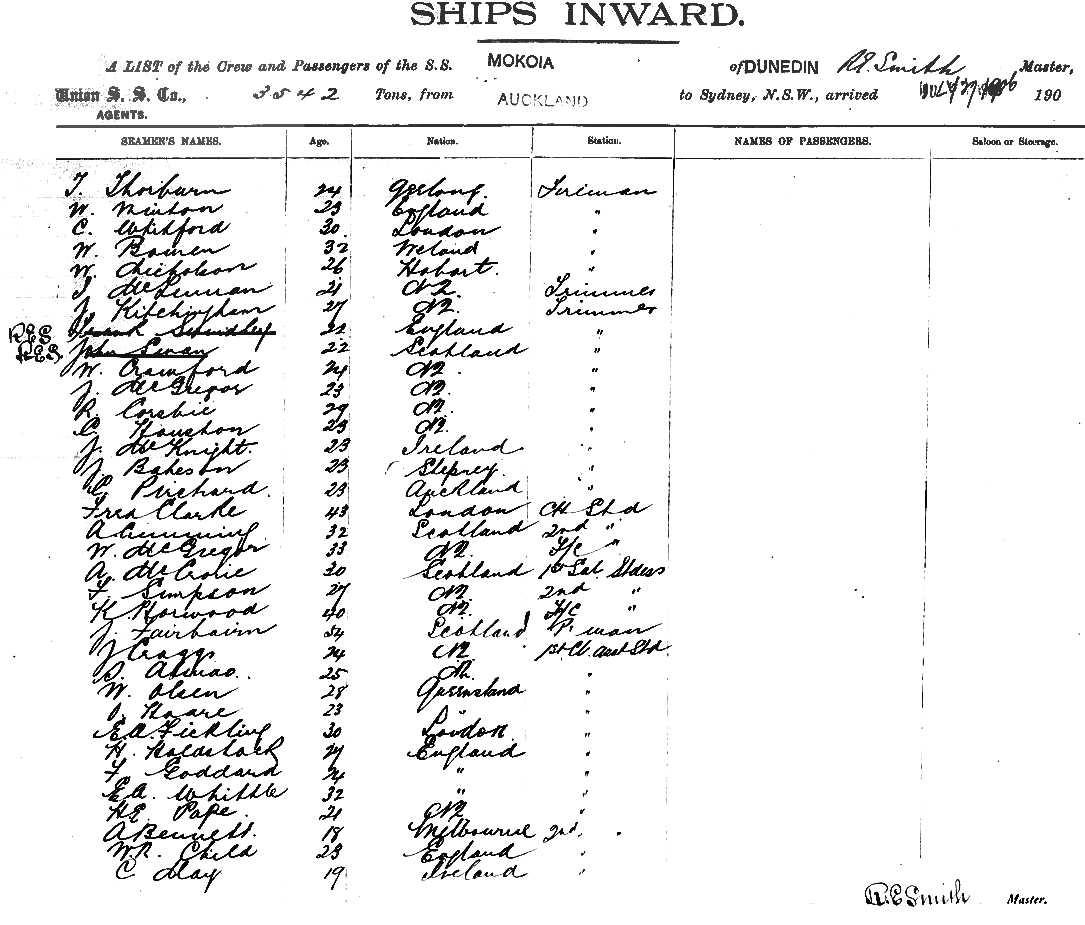 SHIPS INWARD.
A LIST of the Crew and Passengers of the S.S. MOKOIA of DUNEDIN R.E. Smith Master,
Union S. S. Co., 3542 Tons, from AUCKLAND to Sydney, N.S.W., arrived JULY 27 1906 190
AGENTS.
SEAMEN'S NAMES. Age. Nation. Station. NAMES OF PASSENGERS. Saloon or Steerage.
T. Thorburn 24 Geelong Fireman
W. Minton 23 England "
C. Whitford 30 London "
W. Bowen 32 Ireland "
W. Nicholson 26 Hobart. "
J. McLennan 21 NZ. Trimmer
J. Kitchingham 27 NZ. Trimmer
RES Frank Smidley 22 England "
RES. John Swan 22 Scotland "
W. Crawford 24 NZ. "
J. McGregor 23 NZ. "
R. Corsbie 29 NZ. "
C. Houston 23 NZ. "
J. McKnight. 23 Ireland "
J. Bateson 23 Stepney. "
C. Prichard. 23 Auckland "
Fred Clarke 43 London CH Std
A Cumming 32 Scotland 2nd "
W. McGregor 33 NZ. F/c "
A. McCrorie 30 Scotland 1st Sal. Stdess
F. Simpson 27 NZ. 2nd "
K. Horwood 40 NZ. F/c "
J. Fairbairn 34 Scotland P. man
J Craggs 24 NZ 1st Cl. Asst Std.
25 NZ. "
W. Olsen 28 Queensland "
J. Hoare 23 " "
E.A. Fickling 30 London "
H. Holdstock 27 England "
F. Goddard 24 " "
E.A. Whittle 32 " "
H.E. Pope. 21 NZ "
A Bennett. 18 Melbourne 2nd. "
W.R. Child 23 England "
C May 19 Ireland "
R.E Smith Master.